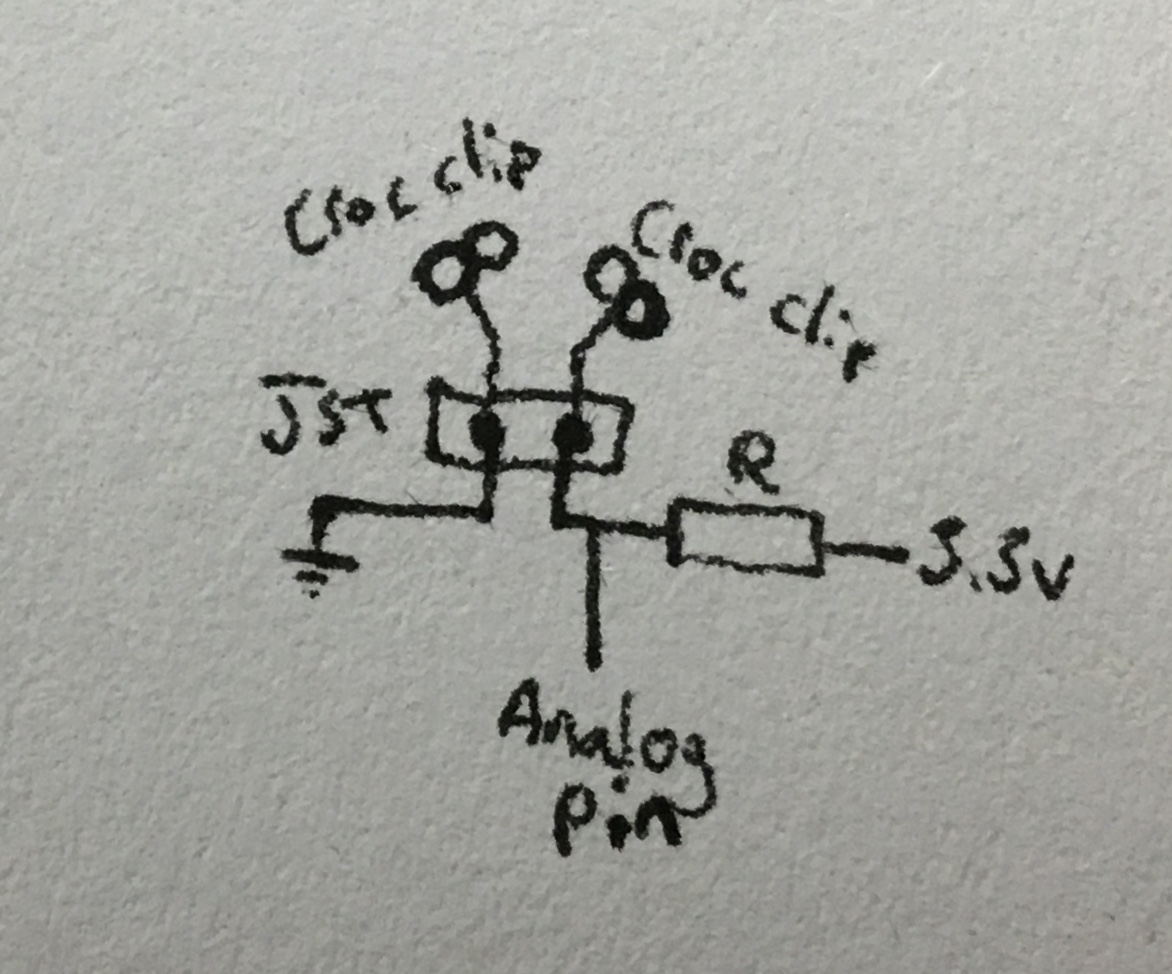 Croc clip
Croc clip
JST
R
3.3v
Analog
pin